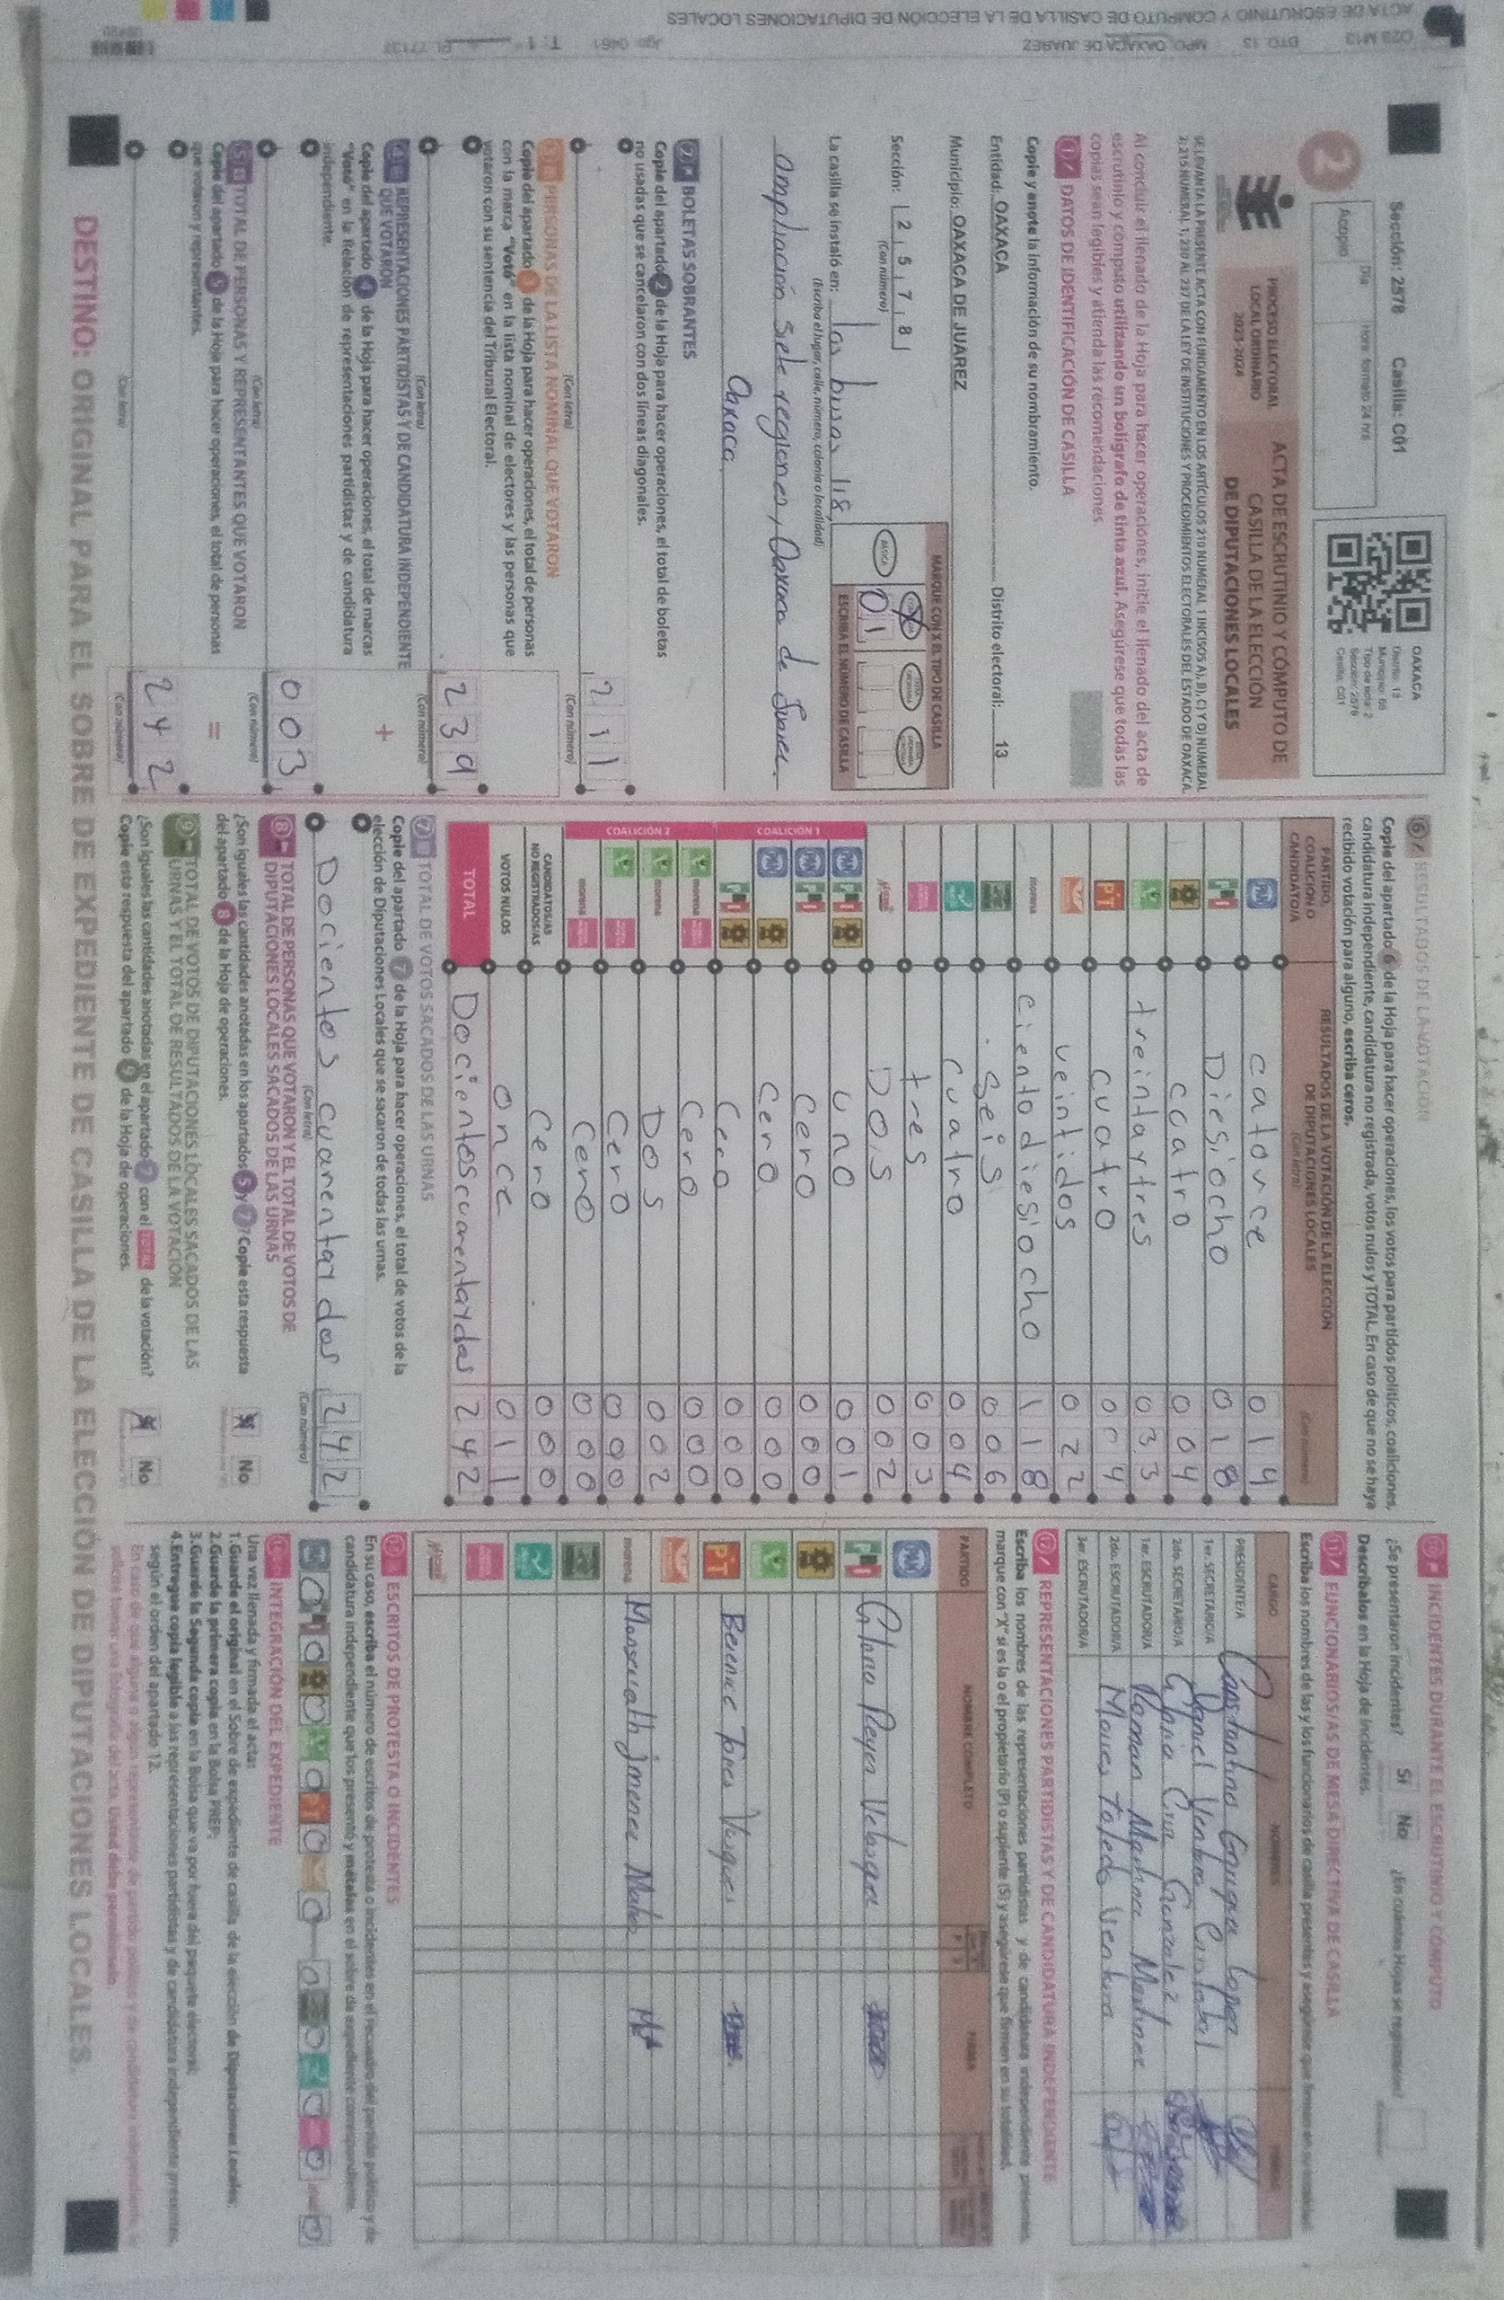 Sección: 2578 Casilla: C01
OAXACA
Distrito: 13
Municipio: 66
Tipo de acta: 2
Sección: 2578
Casilla: C01
2
Acopio
Día
Hora - formato 24 hrs
PROCESO ELECTORAL
LOCAL ORDINARIO
2023-2024
ACTA DE ESCRUTINIO Y CÓMPUTO DE
CASILLA DE LA ELECCIÓN
DE DIPUTACIONES LOCALES
SE LEVANTA LA PRESENTE ACTA CON FUNDAMENTO EN LOS ARTÍCULOS 210 NUMERAL 1 INCISOS A), B), C) Y D) NUMERAL
2; 215 NUMERAL 1; 230 AL 237 DE LA LEY DE INSTITUCIONES Y PROCEDIMIENTOS ELECTORALES DEL ESTADO DE OAXACA.
Al concluir el llenado de la Hoja para hacer operaciones, inicie el llenado del acta de
escrutinio y cómputo utilizando un bolígrafo de tinta azul. Asegúrese que todas las
copias sean legibles y atienda las recomendaciones.
1 DATOS DE IDENTIFICACIÓN DE CASILLA
Copie y anote la información de su nombramiento.
Entidad: OAXACA Distrito electoral: 13
Municipio: OAXACA DE JUAREZ
Sección: 2 5 7 8
(Con número)
MARQUE CON X EL TIPO DE CASILLA
BÁSICA
01
ESCRIBA EL NÚMERO DE CASILLA
La casilla se instaló en: las busas 118,
(Escriba el lugar, calle, número, colonia o localidad)
ampliación siete regiones, Oaxaca de Juarez.
Oaxaca.
2 BOLETAS SOBRANTES
Copie del apartado 2 de la Hoja para hacer operaciones, el total de boletas
no usadas que se cancelaron con dos líneas diagonales.
211
(Con letra) (Con número)
3 PERSONAS DE LA LISTA NOMINAL QUE VOTARON
Copie del apartado 3 de la Hoja para hacer operaciones, el total de personas
con la marca "Votó" en la lista nominal de electores y las personas que
votaron con su sentencia del Tribunal Electoral.
239
(Con letra) (Con número)
4 REPRESENTACIONES PARTIDISTAS Y DE CANDIDATURA INDEPENDIENTE
QUE VOTARON
+
Copie del apartado 4 de la Hoja para hacer operaciones, el total de marcas
"Votó" en la Relación de representaciones partidistas y de candidatura
independiente.
003
(Con letra) (Con número)
5 TOTAL DE PERSONAS Y REPRESENTANTES QUE VOTARON
=
Copie del apartado 5 de la Hoja para hacer operaciones, el total de personas
que votaron y representantes.
242
(Con letra) (Con número)
6 RESULTADOS DE LA VOTACIÓN
Copie del apartado 6 de la Hoja para hacer operaciones, los votos para partidos políticos, coaliciones,
candidatura independiente, candidatura no registrada, votos nulos y TOTAL. En caso de que no se haya
recibido votación para alguno, escriba ceros.
PARTIDO, COALICIÓN O CANDIDATO/A
RESULTADOS DE LA VOTACIÓN DE LA ELECCIÓN DE DIPUTACIONES LOCALES
(Con letra) (Con número)
PAN catorce 014
PRI Diesiocho 018
cuatro 004
treintaytres 033
PT cuatro 004
veintidos 022
morena cientodiesiocho 118
seis 006
cuatro 004
tres 003
DOS 002
COALICIÓN 1
PAN PRI uno 001
PAN PRI cero 000
PAN cero 000
PRI cero 000
COALICIÓN 2
morena cero 000
morena DOS 002
cero 000
morena cero 000
CANDIDATOS/AS NO REGISTRADOS/AS cero 000
VOTOS NULOS once 011
TOTAL Docientoscuarentaydos 242
7 TOTAL DE VOTOS SACADOS DE LAS URNAS
Copie del apartado 7 de la Hoja para hacer operaciones, el total de votos de la
elección de Diputaciones Locales que se sacaron de todas las urnas.
Docientos cuarentaydos 242
(Con letra) (Con número)
8 TOTAL DE PERSONAS QUE VOTARON Y EL TOTAL DE VOTOS DE
DIPUTACIONES LOCALES SACADOS DE LAS URNAS
¿Son iguales las cantidades anotadas en los apartados 5 y 7? Copie esta respuesta
del apartado 8 de la Hoja de operaciones.
Sí No
9 TOTAL DE VOTOS DE DIPUTACIONES LOCALES SACADOS DE LAS
URNAS Y EL TOTAL DE RESULTADOS DE LA VOTACIÓN
¿Son iguales las cantidades anotadas en el apartado 7 con el TOTAL de la votación?
Copie esta respuesta del apartado 9 de la Hoja de operaciones.
Sí No
10 INCIDENTES DURANTE EL ESCRUTINIO Y CÓMPUTO
¿Se presentaron incidentes? Sí No ¿En cuántas Hojas se registraron?
Descríbalos en la Hoja de incidentes.
11 FUNCIONARIOS/AS DE MESA DIRECTIVA DE CASILLA
Escriba los nombres de las y los funcionarios de casilla presentes y asegúrese que firmen en su totalidad.
CARGO NOMBRES FIRMAS
PRESIDENTE/A Constantino Gauguez Lopez
1er. SECRETARIO/A Daniel Ventura
2do. SECRETARIO/A Gloria Cruz Gonzalez
1er. ESCRUTADOR/A Roman Martinez Martinez
2do. ESCRUTADOR/A Moises Toledo Ventura
3er. ESCRUTADOR/A
12 REPRESENTACIONES PARTIDISTAS Y DE CANDIDATURA INDEPENDIENTE
Escriba los nombres de las representaciones partidistas y de candidatura independiente presentes,
marque con "X" si es la o el propietario (P) o suplente (S) y asegúrese que firmen en su totalidad.
PARTIDO NOMBRE COMPLETO FIRMAS
PAN
PRI Reyes Velasquez
PT Berenice Torres Vasquez
morena Monserrath jimenez Mateo
13 ESCRITOS DE PROTESTA O INCIDENTES
En su caso, escriba el número de escritos de protesta o incidentes en el recuadro del partido político y de
candidatura independiente que los presentó y métalos en el sobre de expediente correspondiente.
14 INTEGRACIÓN DEL EXPEDIENTE
Una vez llenada y firmada el acta:
1. Guarde el original en el Sobre de expediente de casilla de la elección de Diputaciones Locales;
2. Guarde la primera copia en la Bolsa PREP;
3. Guarde la Segunda copia en la Bolsa que va por fuera del paquete electoral;
4. Entregue copia legible a las representaciones partidistas y de candidatura independiente presentes,
según el orden del apartado 12.
DESTINO: ORIGINAL PARA EL SOBRE DE EXPEDIENTE DE CASILLA DE LA ELECCIÓN DE DIPUTACIONES LOCALES.
DTO. 13 MPO. OAXACA DE JUAREZ
ACTA DE ESCRUTINIO Y CÓMPUTO DE CASILLA DE LA ELECCIÓN DE DIPUTACIONES LOCALES